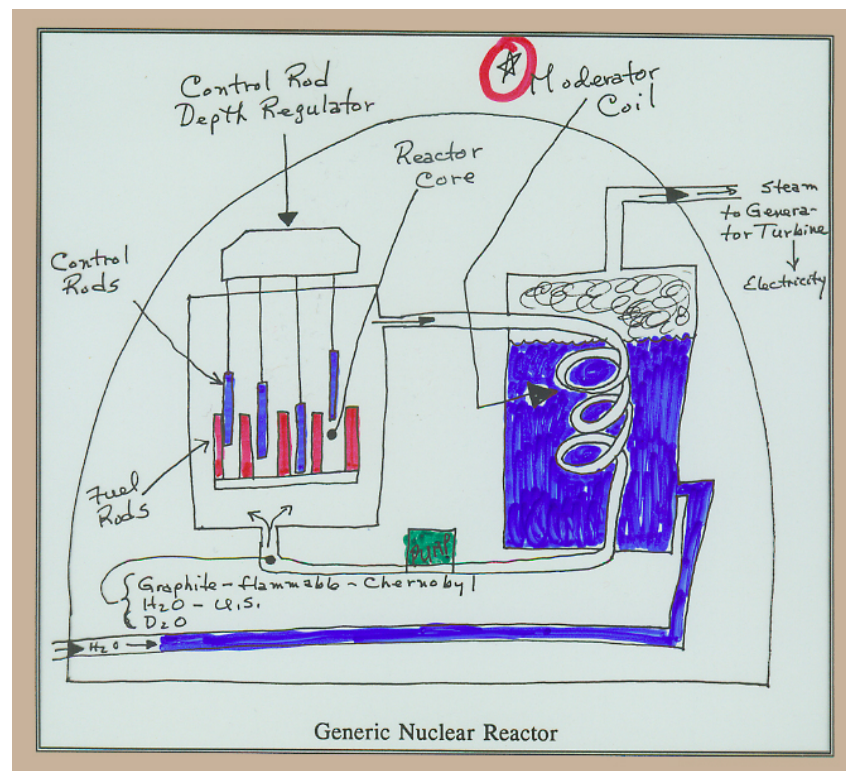 Control Rod
Depth Regulator
☆ Moderator
Coil
Reactor
Core
Steam
to Genera-
tor Turbine
↓
Electricity
Control
Rods
Fuel
Rods
Pump
Graphite - flammable - Chernobyl
H2O - U.S.
D2O
H2O →
Generic Nuclear Reactor